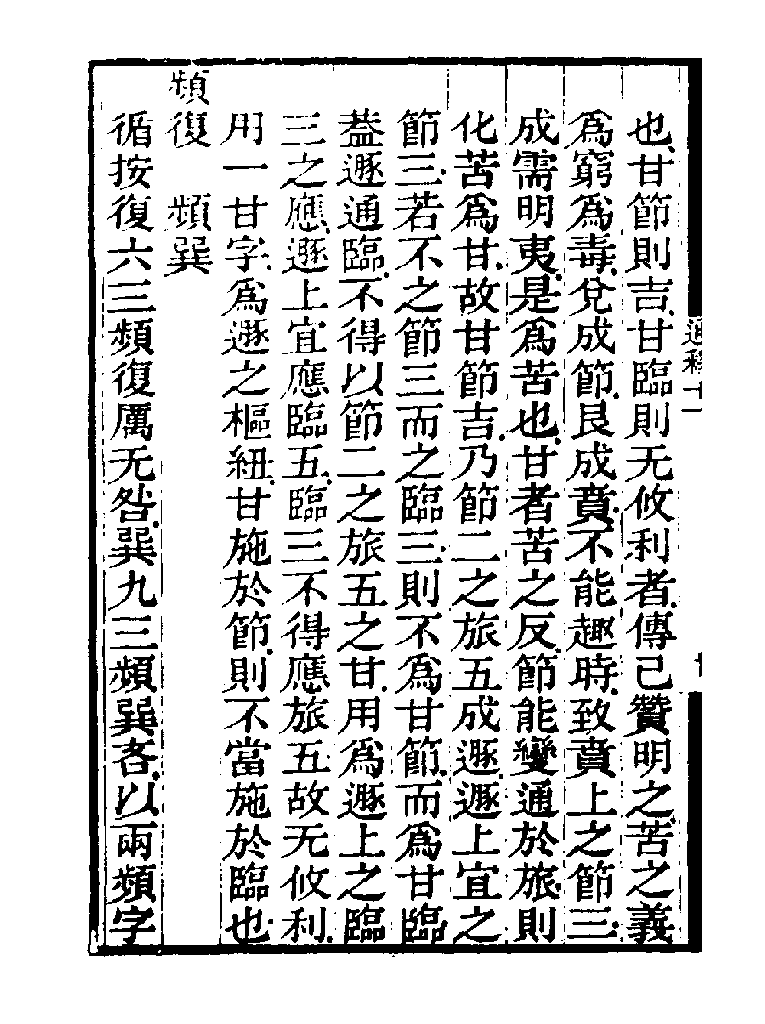 也甘節則吉甘臨則无攸利者傳己贊明之苦之義
爲窮爲毒兌成節艮成賁不能趣時致賁上之節三
成需明夷是爲苦也甘者苦之反節能變通於旅則
化苦爲甘故甘節吉乃節二之旅五成遯遯上宜之
節三若不之節三而之臨三則不爲甘節而爲甘臨
蓋遯通臨不得以節二之旅五之甘用爲遯上之臨
三之應遯上宜應臨五臨三不得應旅五故无攸利
用一甘字爲遯之樞紐甘施於節則不當施於臨也
頻復 頻巽
循按復六三頻復厲无咎巽九三頻巽吝以兩頻字
通釋十一